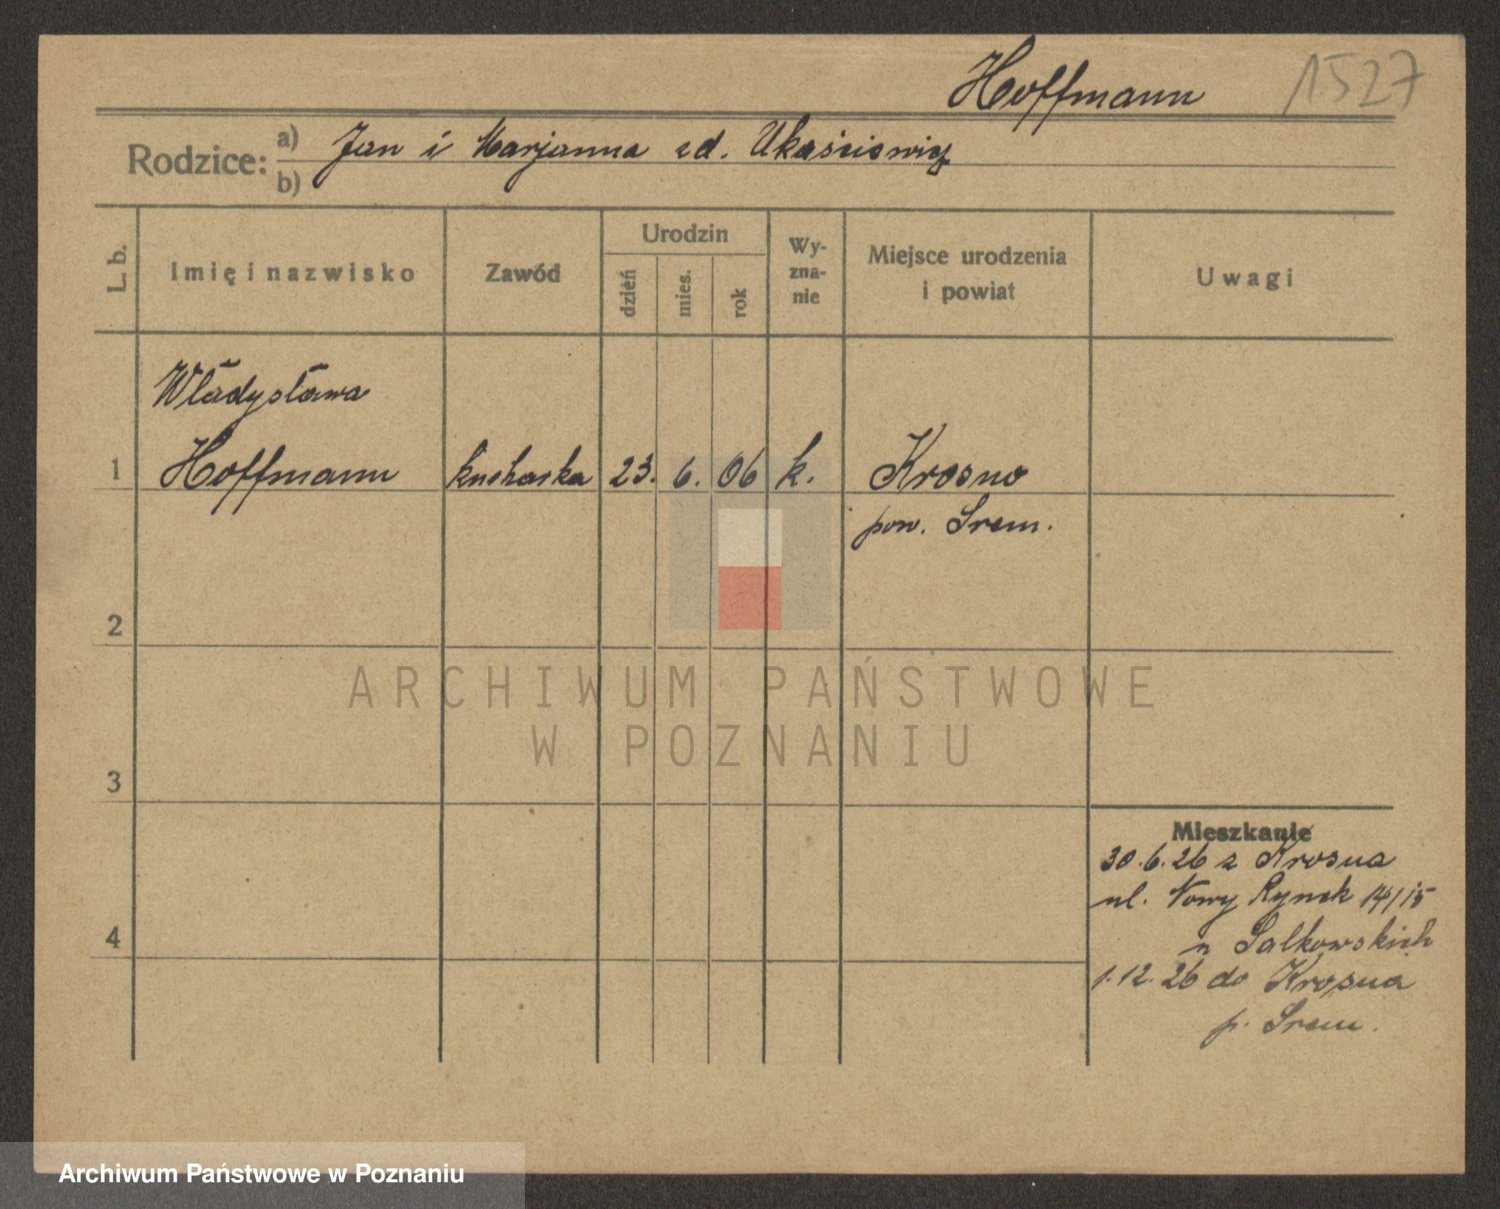 Hoffmann 1527
Rodzice: a) Jan i Marjanna zd.
b)
L. b.
Imię i nazwisko
Zawód
Urodzin
dzień
mies.
rok
Wy-
zna-
nie
Miejsce urodzenia
i powiat
Uwagi
Władysława
1 Hoffmann kucharka 23. 6. 06 k. Krosno
pow. Śrem.
2
3
4
Mieszkanie
30.6.26 z Krosna
ul. Nowy Rynek 14/15
u Salkowskich
1.12.26 do Krosna
p. Śrem.
ARCHIWUM PAŃSTWOWE
W POZNANIU
Archiwum Państwowe w Poznaniu